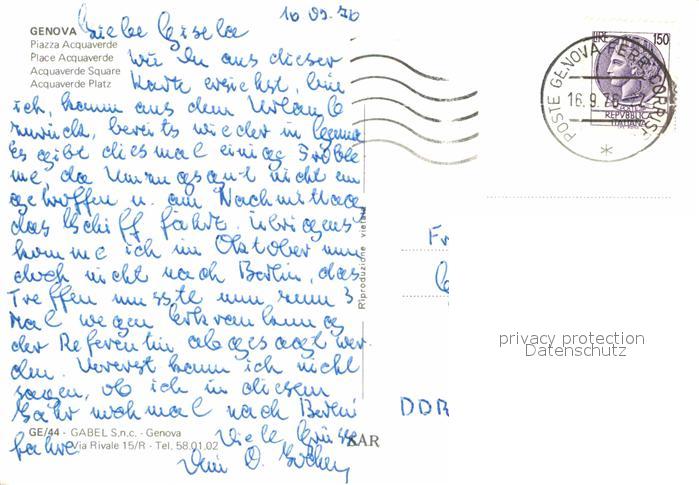 16.09.76
Liebe Gisela
GENOVA
Piazza Acquaverde
Place Acquaverde
Acquaverde Square
Acquaverde Platz
wie Du aus dieser
Karte ersiehst, bin
ich, kaum aus dem Urlaub
zurück, bereits wieder in Genua
Es gibt diesmal einige Proble
me, da Umzugsgut nicht ein
getroffen u. am Nachmittag
das Schiff fährt. Übrigens
komme ich im Oktober nun
doch nicht nach Berlin, das
Treffen musste nun zum 3
Mal wegen Erkrankung
der Referentin abgesagt wer
den. Vorerst kann ich nicht
sagen, ob ich in diesem
Jahr nochmal nach Berlin
fahre.
Viele Grüsse
Dein D.
GE/44 - GABEL S.n.c. - Genova
Via Rivale 15/R - Tel. 58.01.02
KAR
Riproduzione vietata
LIRE 150
REPVBBLICA
ITALIANA
POSTE GENOVA FERR. CORRISP.
16.9.76
Fr
DDR
privacy protection
Datenschutz